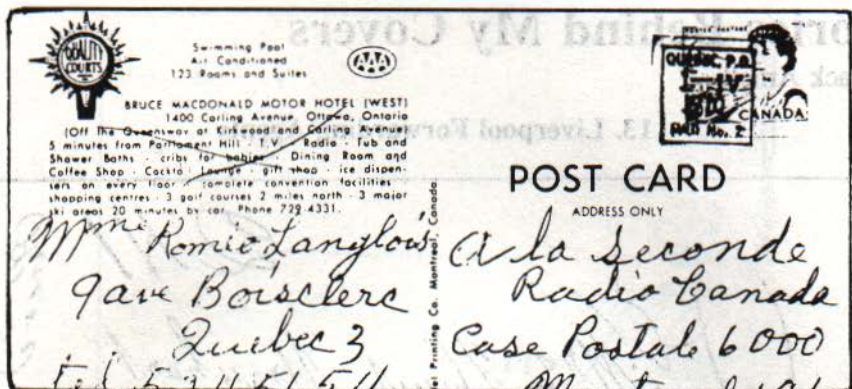 QUALITY
COURTS
Swimming Pool
Air Conditioned
123 Rooms and Suites
AAA
BRUCE MACDONALD MOTOR HOTEL (WEST)
1400 Carling Avenue, Ottawa, Ontario
(Off the Queensway at Kirkwood and Carling Avenue)
5 minutes from Parliament Hill · T.V. · Radio · Tub and
Shower Baths · cribs for babies · Dining Room and
Coffee Shop · Lounge · gift shop · ice dispen-
sers on every floor · complete convention facilities
shopping centres · 3 golf courses 2 miles north · 3 major
ski areas 20 minutes by car. Phone 729-4331.
Mme Romio Langlois
9 ave Boisclerc
Quebec 3
QUEBEC, P.Q.
IV
No. 2
CANADA
POST CARD
ADDRESS ONLY
A la seconde
Radio Canada
Case Postal 6000
Printing Co. Montreal, Canada
ories Behind My Covers
ack
13. Liverpool